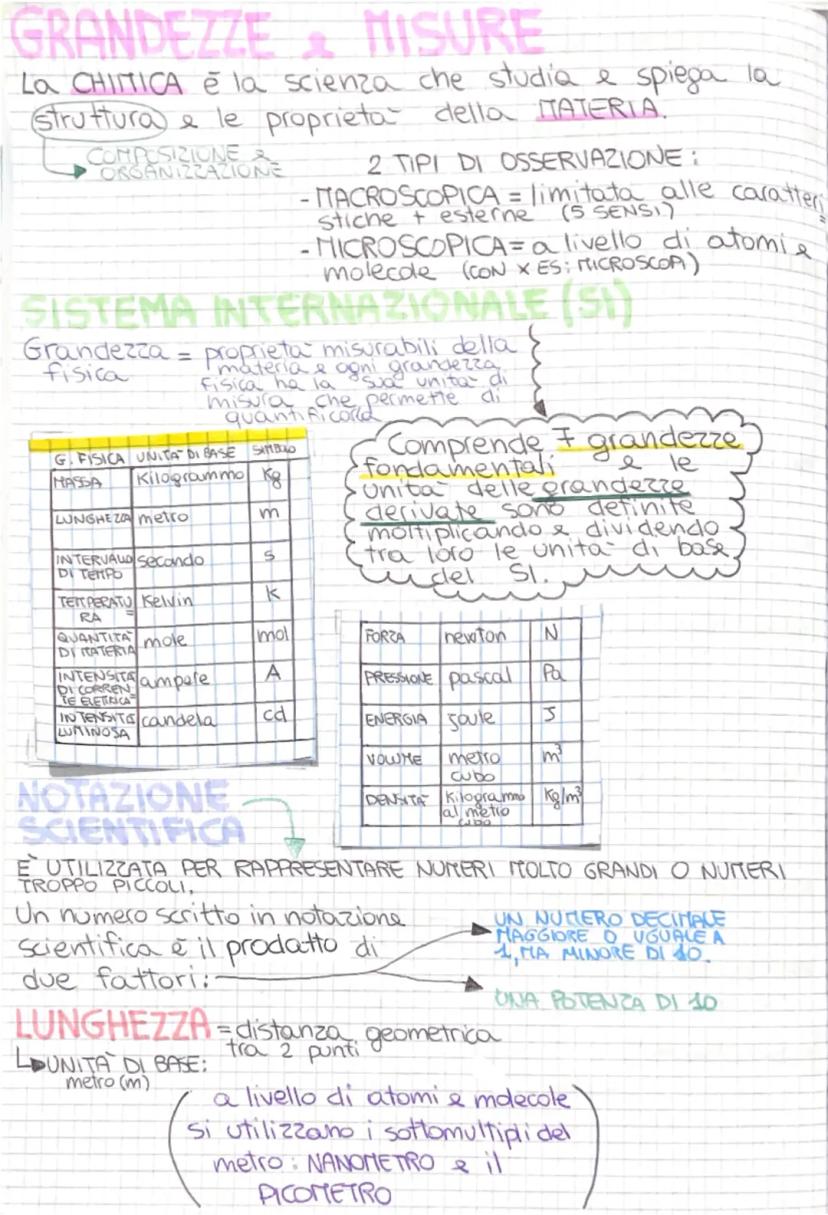 GRANDEZZE e MISURE
La CHIMICA è la scienza che studia e spiega la
struttura e le proprietà della MATERIA.
COMPOSIZIONE e
ORGANIZZAZIONE
2 TIPI DI OSSERVAZIONE:
- MACROSCOPICA = limitata alle caratteri
stiche + esterne (5 SENSI)
- MICROSCOPICA = a livello di atomi e
molecole (CON x ES: MICROSCOPI)
SISTEMA INTERNAZIONALE (SI)
Grandezza = proprietà misurabili della
fisica materia e ogni grandezza
fisica ha la sua unità di
misura che permette di
quantificarla
Comprende 7 grandezze
fondamentali e le
unità delle grandezze
derivate sono definite
moltiplicando e dividendo
tra loro le unità di base
del SI.
G. FISICA UNITÀ DI BASE SIMBOLO
MASSA Kilogrammo Kg
LUNGHEZZA metro m
INTERVALLO secondo s
DI TEMPO
TEMPERATU Kelvin K
RA
QUANTITÀ mole mol
DI MATERIA
INTENSITÀ ampere A
DI CORREN
TE ELETTRICA
INTENSITÀ candela cd
LUMINOSA
FORZA newton N
PRESSIONE pascal Pa
ENERGIA joule J
VOLUME metro m³
cubo
DENSITÀ Kilogrammo Kg/m³
al metro
cubo
NOTAZIONE
SCIENTIFICA
È UTILIZZATA PER RAPPRESENTARE NUMERI MOLTO GRANDI O NUMERI
TROPPO PICCOLI.
Un numero scritto in notazione
scientifica è il prodotto di
due fattori:
UN NUMERO DECIMALE
MAGGIORE O UGUALE A
1, MA MINORE DI 10.
UNA POTENZA DI 10
LUNGHEZZA = distanza geometrica
tra 2 punti
UNITÀ DI BASE:
metro (m)
(a livello di atomi e molecole
si utilizzano i sottomultipli del
metro: NANOMETRO e il
PICOMETRO)